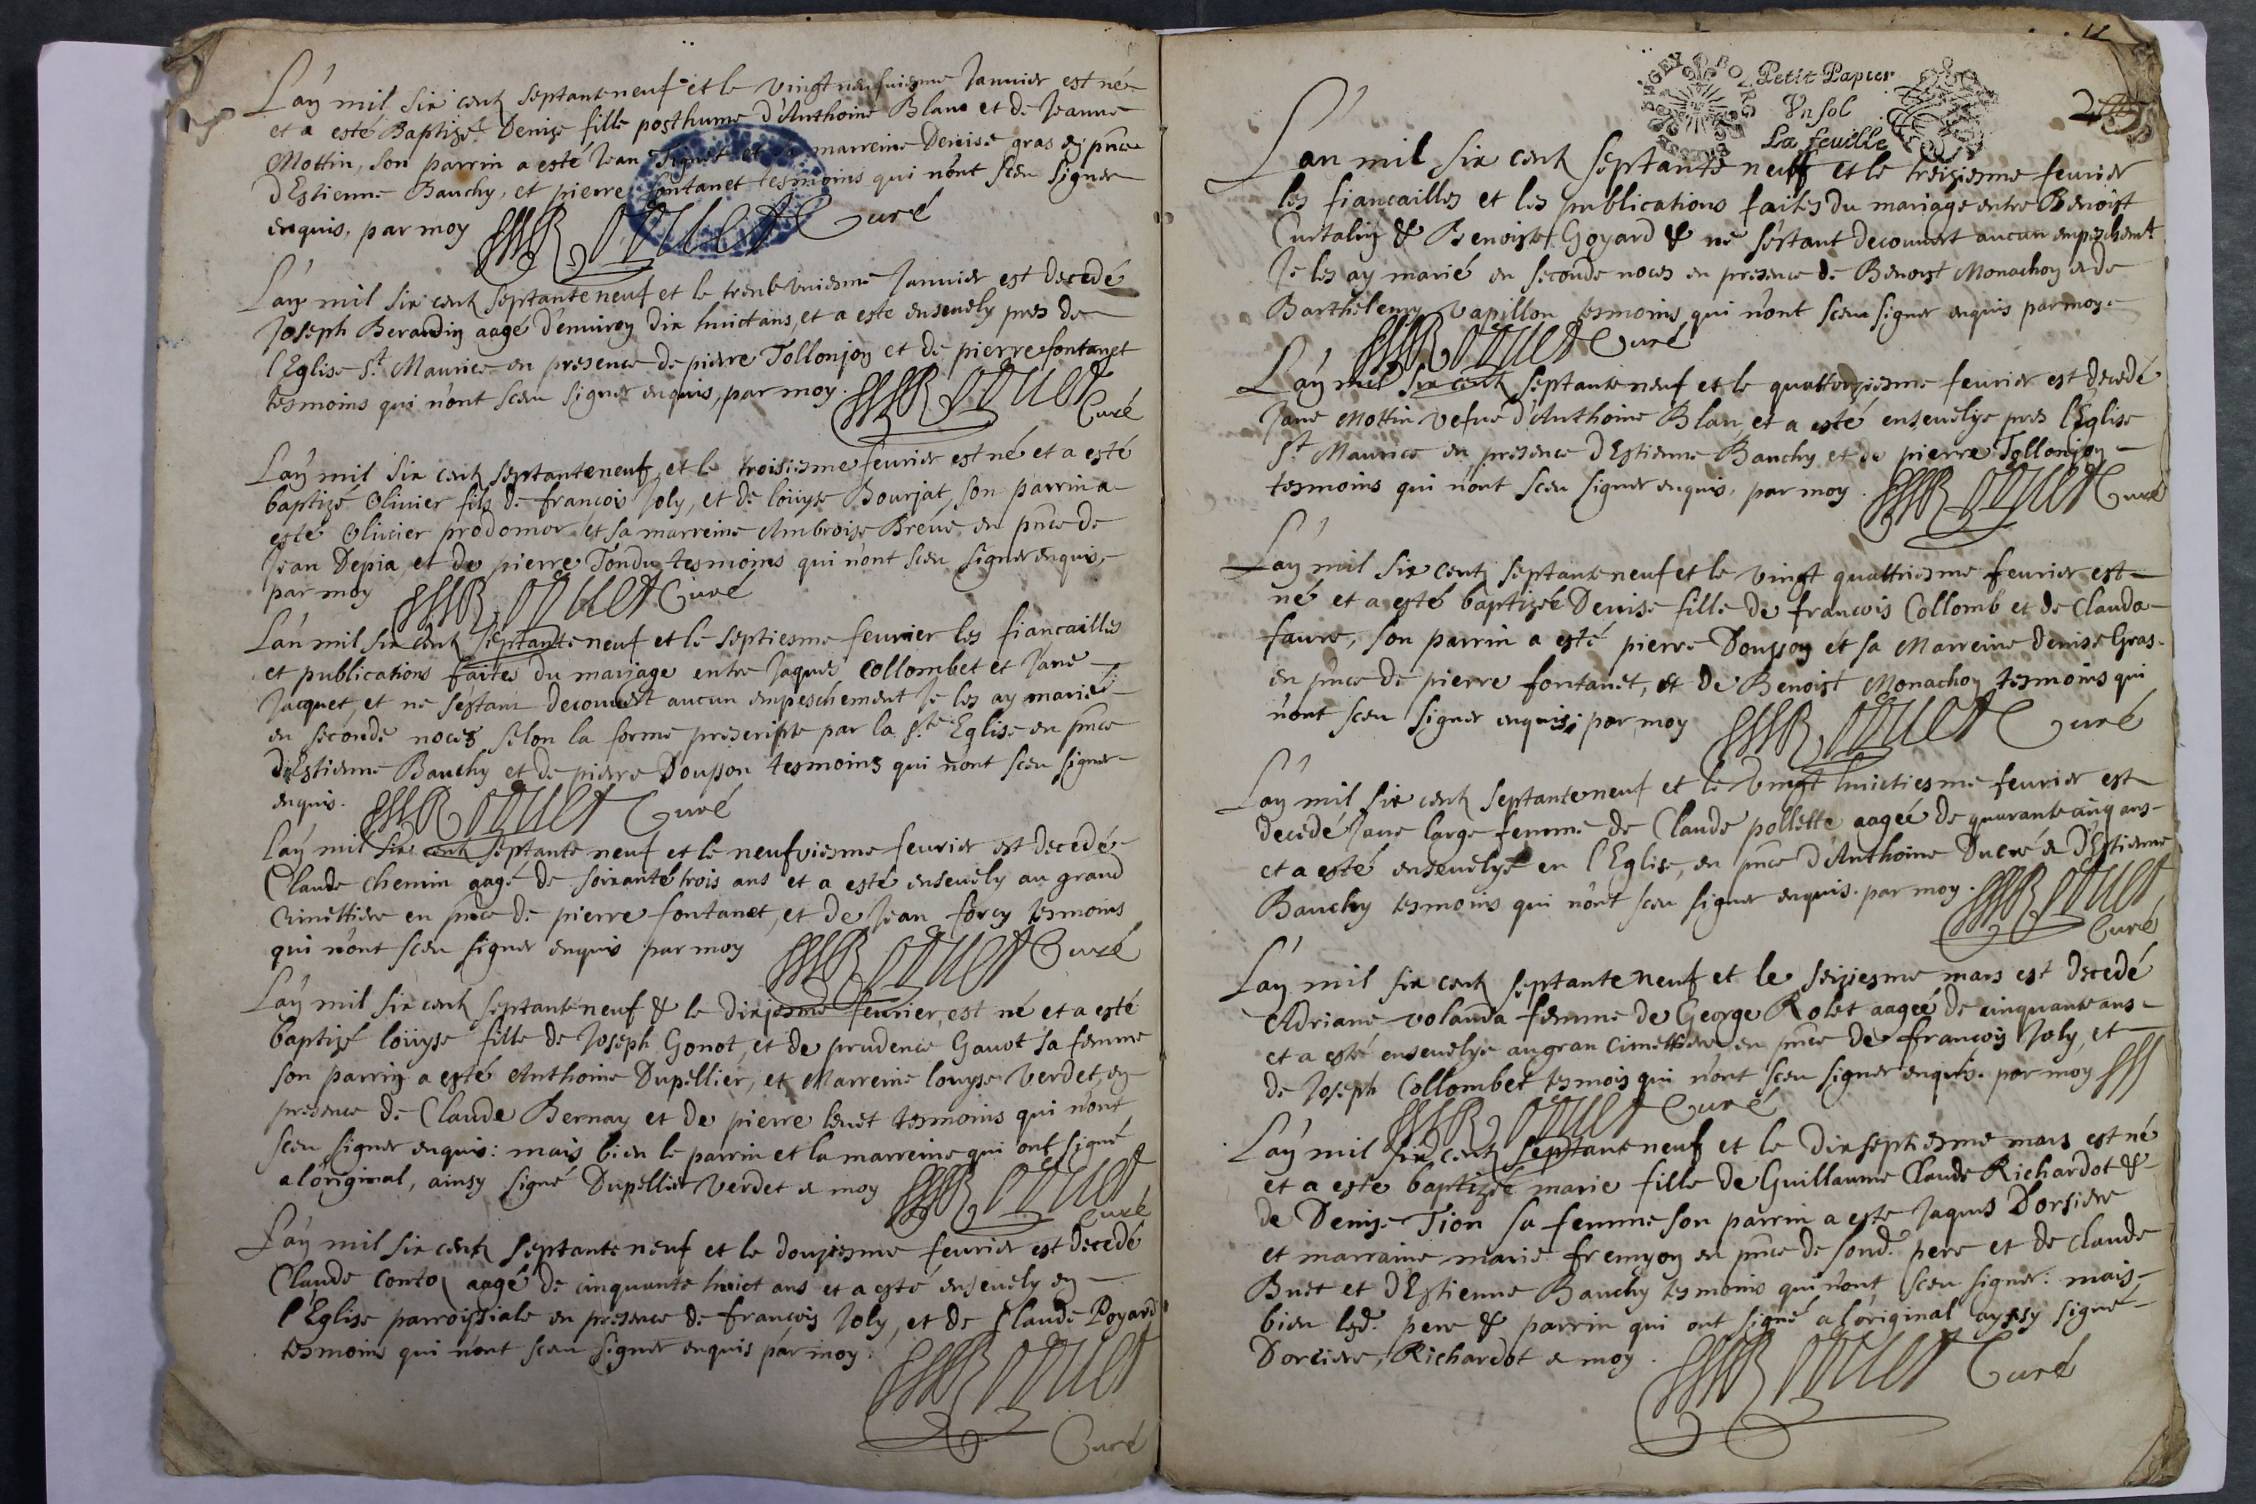 Lan mil six cent septante neuf et le vingt neufuiesme Januier est né
et a esté Baptizé Denize fille posthume d'Anthoine Blanc et de Jeanne
Mottin, son parrin a esté Jean et sa marreine Denise gras en pnce
d'Estienne Bauchy, et pierre fontanet tesmoins qui n'ont sceu signer
enquis, par moy Curé
Lan mil six cent septante neuf et le trente vniesme Januier est decedé
Joseph Berardin aagé d'enuiron dix huict ans, et a este enseuely pres de
l'Eglise St Maurice en presence de pierre Tollonjon et de pierre fontanet
tesmoins qui n'ont sceu signer enquis, par moy.
Curé
Lan mil six cent septante neuf, et le troisiesme feurier est né et a esté
baptizé Oliuier fils de francois Joly, et de loüyse Bourjat, son parrin a
esté Oliuier prodomor et sa marreine Ambroise Breue en pnce de
Jean Depia, et de pierre Tondu tesmoins qui n'ont sceu signer enquis,
par moy Curé
Lan mil six cent septante neuf et le septiesme feurier les fiancailles
et publications faites du mariage entre Jaques Collombet et Jane
Jacquet, et ne s'estant decouuert aucun empeschement Je les ay marié
en seconde noces selon la forme prescripte par la ste Eglise en pnce
d'Estienne Bauchy et de pierre Dousson tesmoins qui n'ont sceu signer
enquis. Curé
Lan mil six cent septante neuf et le neufuiesme feurier est decedé
Claude chemin aagé de soixante trois ans et a esté enseuely au grand
cimettiere en pnce de pierre fontanet, et de Jean forcy tesmoins
qui n'ont sceu signer enquis par moy Curé
Lan mil six cent septante neuf & le dixiesme feurier, est né et a esté
baptizé loüyse fille de Joseph Gonot, et de prudence Gauot sa femme
son parrin a esté Anthoine Dupellier, et Marreine louyse Verdet, en
presence de Claude Bernay et de pierre leuet tesmoins qui n'ont
sceu signer enquis: mais bien le parrin et la marreine qui ont signé
a l'original, ainsy signé Dupellier Verdet & moy
Curé
Lan mil six cent septante neuf et le douziesme feurier est decedé
Claude Conto aagé de cinquante huict ans et a esté enseuely en
l'Eglise parroissiale en presence de francois Joly, et de Claude Poyard
tesmoins qui n'ont sceu signer enquis par moy.
Curé
Petit Papier
Vn sol
La feuille
Lan mil six cent septante neuf et le treiziesme feurier
les fiancailles et les publications faites du mariage entre Benoist
Curtalin & Benoiste Goyard & ne s'estant decouuert aucun empeschemt
Je les ay marié en seconde noces en presence de Benoist Monachon et de
Barthelemy Vapillon tesmoins qui n'ont sceu signer enquis par moy
Curé
Lan mil six cent septante neuf et le quattorziesme feurier est decedé
Jane Mottin vefue d'Anthoine Blan, et a esté enseuelye pres l'Eglise
St Maurice en presence d'Estienne Bauchy et de pierre Tollonjon
tesmoins qui n'ont sceu signer enquis, par moy. Curé
Lan mil six cent septante neuf et le vingt quattriesme feurier est
né et a esté baptizée Denise fille de francois Collomb et de Clauda
faure, son parrin a esté pierre Dousson et sa Marreine denise Gras
en pnce de pierre fontanet, et de Benoist Monachon tesmoins qui
n'ont sceu signer enquis, par moy Curé
Lan mil six cent septante neuf et le vingt huictiesme feurier est
decedé Jane large femme de Claude pollette aagée de quarante cinq ans
et a esté enseuelye en l'Eglise, en pnce d'Anthoine Ducré & d'Estienne
Bauchy tesmoins qui n'ont sceu signer enquis. par moy.
Curé
Lan mil six cent septante neuf et le seiziesme mars est decedé
Adriane volanda femme de George Rolet aagée de cinquante ans
et a esté enseuelye au gran cimettiere en pnce de françois Joly, et
de Joseph Collombet tesmois qui n'ont sceu signer enquis. par moy
Curé
Lan mil six cent septante neuf et le dixseptiesme mars est né
et a este baptizée marie fille de Guillaume Claude Richardot &
de Denize Tion sa femme son parrin a este Jaques Dorsiere
et marraine marie fremyon en pnce de sond. pere et de claude
Buet et d'Estienne Bauchy tesmoins qui n'ont sceu signer: mais
bien led. pere & parrin qui ont signé a l'original aynsy signé
Dorciere, Richardot & moy. Curé